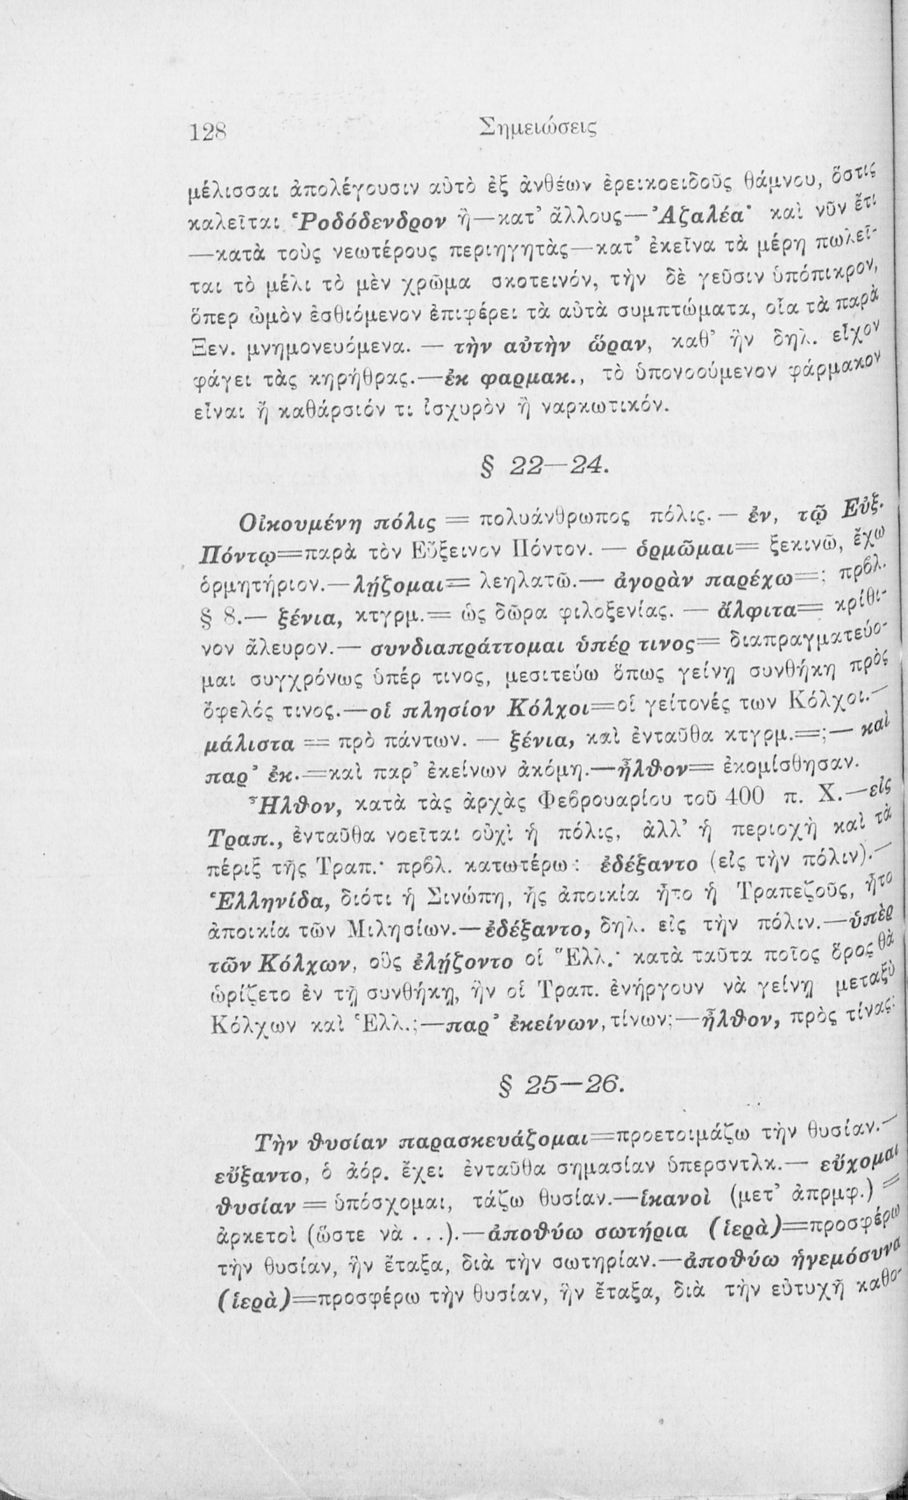 128 Σημειώσεις
μέλισσαι ἀπολέγουσιν αὐτὸ ἐξ ἀνθέων ἐρεικοειδοῦς θάμνου, ὅστις
καλεῖται Ῥοδόδενδρον ἢ—κατ’ ἄλλους—Ἀζαλέα· καὶ νῦν ἔτι
—κατὰ τοὺς νεωτέρους περιηγητὰς—κατ’ ἐκεῖνα τὰ μέρη πωλεῖ-
ται τὸ μέλι τὸ μὲν χρῶμα σκοτεινόν, τὴν δὲ γεῦσιν ὑπόπικρον,
ὅπερ ὠμὸν ἐσθιόμενον ἐπιφέρει τὰ αὐτὰ συμπτώματα, οἷα τὰ παρὰ
Ξεν. μνημονευόμενα. — τὴν αὐτὴν ὥραν, καθ’ ἣν δηλ. εἶχον
φάγει τὰς κηρήθρας.—ἐκ φαρμακ., τὸ ὑπονοούμενον φάρμακον
εἶναι ἢ καθάρσιόν τι ἰσχυρὸν ἢ ναρκωτικόν.
§ 22—24.
Οἰκουμένη πόλις = πολυάνθρωπος πόλις. — ἐν, τῷ Εὐξ.
Πόντῳ=παρὰ τὸν Εὔξεινον Πόντον. — ὁρμῶμαι= ξεκινῶ, ἔχω
ὁρμητήριον.—λῄζομαι= λεηλατῶ.— ἀγορὰν παρέχω=; πρβλ.
§ 8.— ξένια, κτγρμ.= ὡς δῶρα φιλοξενίας. — ἄλφιτα= κρίθι-
νον ἄλευρον.— συνδιαπράττομαι ὑπέρ τινος= διαπραγματεύο-
μαι συγχρόνως ὑπέρ τινος, μεσιτεύω ὅπως γείνῃ συνθήκη πρὸς
ὄφελός τινος.—οἱ πλησίον Κόλχοι=οἱ γείτονές των Κόλχοι.—
μάλιστα = πρὸ πάντων. — ξένια, καὶ ἐνταῦθα κτγρμ.=;— καὶ
παρ’ ἐκ.=καὶ παρ’ ἐκείνων ἀκόμη.—ἦλθον= ἐκομίσθησαν.
Ἦλθον, κατὰ τὰς ἀρχὰς Φεβρουαρίου τοῦ 400 π. Χ.—εἰς
Τραπ., ἐνταῦθα νοεῖται οὐχὶ ἡ πόλις, ἀλλ’ ἡ περιοχὴ καὶ τὰ
πέριξ τῆς Τραπ.· πρβλ. κατωτέρω: ἐδέξαντο (εἰς τὴν πόλιν).—
Ἑλληνίδα, διότι ἡ Σινώπη, ἧς ἀποικία ἦτο ἡ Τραπεζοῦς, ἦτο
ἀποικία τῶν Μιλησίων.—ἐδέξαντο, δηλ. εἰς τὴν πόλιν.—ὑπὲρ
τῶν Κόλχων, οὓς ἐλῄζοντο οἱ Ἕλλ.· κατὰ ταῦτα ποῖος ὅρος θὰ
ὡρίζετο ἐν τῇ συνθήκῃ, ἣν οἱ Τραπ. ἐνήργουν νὰ γείνῃ μεταξὺ
Κόλχων καὶ Ἑλλ.;—παρ’ ἐκείνων, τίνων;—ἦλθον, πρὸς τίνας;
§ 25—26.
Τὴν θυσίαν παρασκευάζομαι=προετοιμάζω τὴν θυσίαν.—
εὔξαντο, ὁ ἀόρ. ἔχει ἐνταῦθα σημασίαν ὑπερσντλκ.— εὔχομαι
θυσίαν = ὑπόσχομαι, τάζω θυσίαν.—ἱκανοὶ (μετ’ ἀπρμφ.) =
ἀρκετοὶ (ὥστε νὰ ...).—ἀποθύω σωτήρια (ἱερὰ)=προσφέρω
τὴν θυσίαν, ἣν ἔταξα, διὰ τὴν σωτηρίαν.—ἀποθύω ἡγεμόσυνα
(ἱερὰ)=προσφέρω τὴν θυσίαν, ἣν ἔταξα, διὰ τὴν εὐτυχῆ καθο-